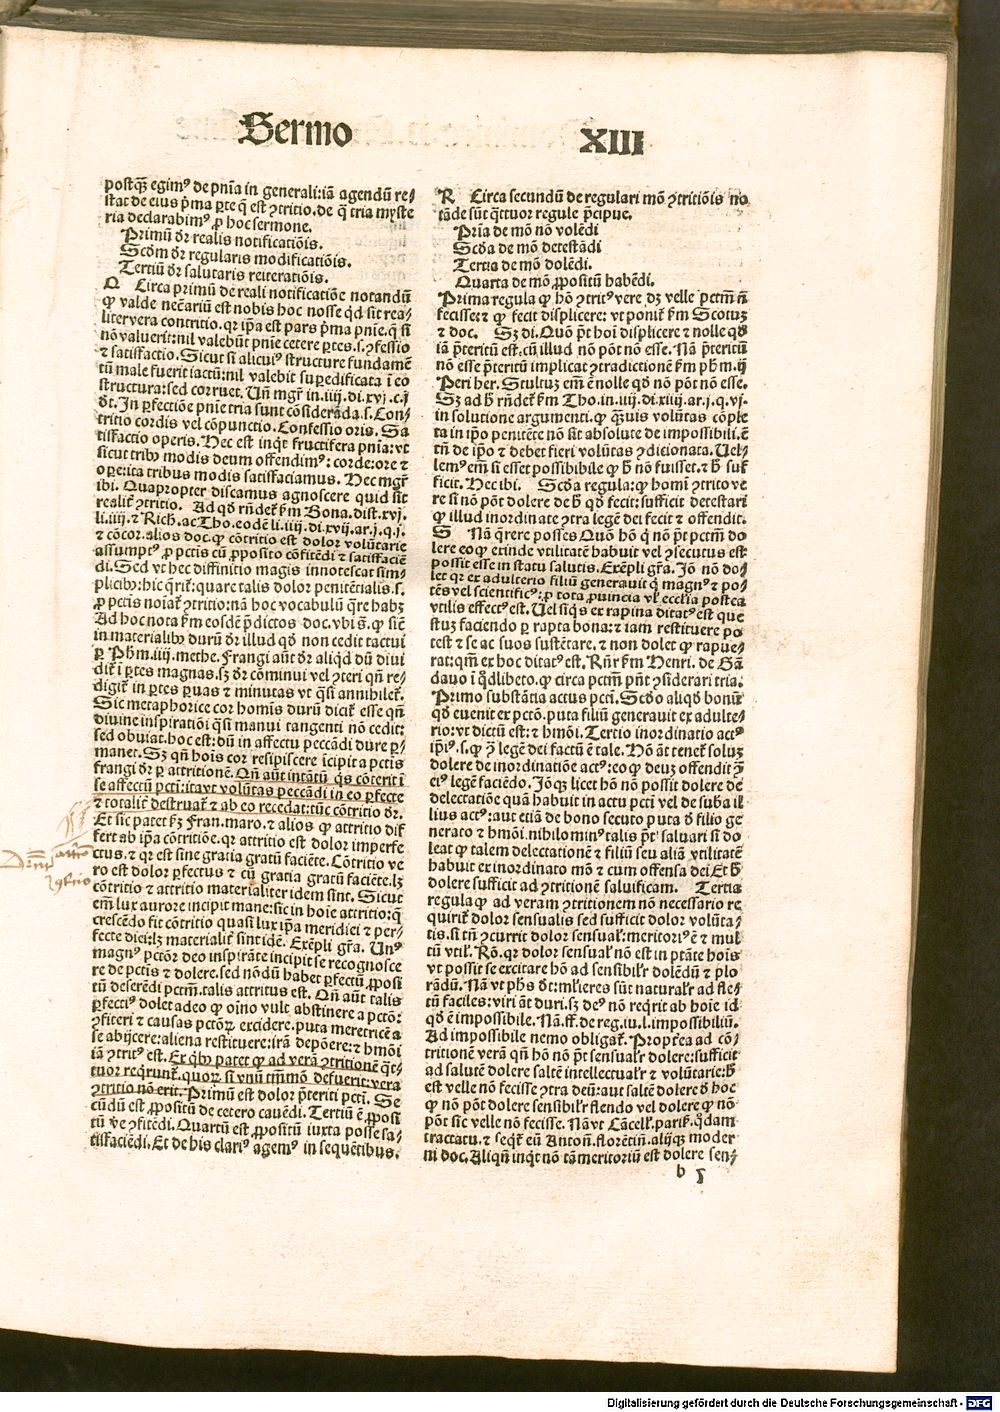 Sermo XIII
postq̄ꝫ egimꝰ de pn̄ia in generali: iā agendū re⸗
stat de eius p̄ma ꝑte q̄ est ꝯtritio. de q̄ tria myste
ria declarabimꝰ ꝓ hoc sermone.
Primū dr̄ realis notificatiōis.
Scd̄m dr̄ regularis modificatiōis.
Tertiū dr̄ salutaris reiteratiōis.
Q Circa primū de reali notificatiōe notandū
ꝙ valde necāriū est nobis hoc nosse qd̄ sit rea⸗
liter vera contritio. qr ip̄a est pars p̄ma pn̄ie. q̄ si
nō valuerit: nil valebūt pn̄ie cetere ꝑtes. s. ꝯfessio
⁊ satisfactio. Sicut si alicuiꝰ structure fundamē
tū male fuerit iactū: nil valebit suꝑedificata ī eo
structura: sed corruet. Un̄ mgr̄ in. iiij. di. xvj. c. j
dt̄. In ꝑfectiōe pn̄ie tria sunt cōsiderāda. s. Con⸗
tritio cordis vel cōpunctio. Confessio oris. Sa
tisfactio operis. Hec est inqt̄ fructifera pn̄ia: vt
sicut tribꝰ modis deum offendimꝰ: corde: ore ⁊
oꝑe: ita tribus modis satisfaciamus. Hec mgr̄
ibi. Quapropter discamus agnoscere quid sit
realit̄ ꝯtritio. Ad qd̄ rn̄det̄ ẜm Bona. dist. xvj.
li. iiij. ⁊ Rich. ac Tho. eodē li. iiij. di. xvij. ar. j. q. j.
⁊ cōcor. alios doc. ꝙ cōtritio est dolor volūtarie
assumptꝰ ꝓ pctis cū ꝓposito cōfitēdi ⁊ satisfaciē
di. Sed vt hec diffinitio magis innotescat sim⸗
plicibꝰ: hic q̄rit̄: quare talis dolor penitētialis. s.
ꝓ pctis noīat̄ ꝯtritio: nā hoc vocabulū q̄re habꝫ
Ad hoc nota ẜm eosdē p̄dictos doc. vbi s̄. ꝙ sic̄
in materialibꝰ durū dr̄ illud qd̄ non cedit tactui
ꝑ Ph̄m. iiij. methe. Frangi aūt dr̄ aliqd̄ dū diui
dit̄ ī ꝑtes magnas. sꝫ dr̄ cōminui vel ꝯteri qn̄ re⸗
digit̄ in ꝑtes ꝑuas ⁊ minutas vt q̄si annihilet̄.
Sic metaphorice cor homis durū dicit̄ esse qn̄
diuine inspiratiōi q̄si manui tangenti nō cedit:
sed obuiat. hoc est: dū in affectu peccādi dure ꝑ⸗
manet. Sꝫ qn̄ hoīs cor resipiscere īcipit a pctis
frangi dr̄ ꝑ attritionē. Qn̄ aūt intātū qs cōterit ī
se affectū pcti: itaut volūtas peccādi in eo ꝑfecte
⁊ totalit̄ destruat̄ ⁊ ab eo recedat: tūc cōtritio dr̄.
Et sic patet ẜꝫ Fran. maro. ⁊ alios ꝙ attritio dif
fert ab ip̄a cōtritiōe. qr attritio est dolor imperfe
ctus. ⁊ qr est sine gratia gratū faciēte. Cōtritio ve
ro est dolor ꝑfectus ⁊ cū gratia gratū faciēte. lꝫ
cōtritio ⁊ attritio materialiter idem sint. Sicut
em̄ lux aurore incipit mane: sic in hoīe attritio: q̄
crescēdo fit cōtritio quasi lux ip̄a meridiei ⁊ per⸗
fecte diei: lꝫ materialit̄ sint idē. Exēpli gr̄a. Unꝰ
magnꝰ pctōr deo inspirāte incipit se recognosce
re de pctis ⁊ dolere. sed nōdū habet ꝑfectū ꝓposi
tū deserēdi pctm̄. talis attritus est. Qn̄ aūt talis
ꝑfectiꝰ dolet adeo ꝙ oīno vult abstinere a pctō:
ꝯfiteri ⁊ causas pctōꝝ excidere. puta meretricē a
se abijcere: aliena restituere: irā depōere: ⁊ hmōi
iā ꝯtritꝰ est. Ex qbꝰ patet ꝙ ad verā ꝯtritionē q̄t⸗
tuor reqrunt̄. quoꝝ si vnū tm̄mō defuerit: vera
ꝯtritio nō erit. Primū est dolor p̄teriti pcti. Se
cūdū est ꝓpositū de cetero cauēdi. Tertiū ē ꝓposi
tū ꝟe ꝯfitēdi. Quartū est ꝓpositū iuxta posse sa⸗
tisfaciēdi. Et de his clariꝰ agemꝰ in sequētibus.
R Circa secundū de regulari mō ꝯtritiōis no
tāde sūt q̄ttuor regule p̄cipue.
Pria de mō nō volēdi
Scd̄a de mō detestādi
Tertia de mō dolēdi.
Quarta de mō ꝓpositū habēdi.
Prima regula ꝙ hō ꝯtritꝰ vere dꝫ velle pctm̄ n̄
fecisse: ⁊ ꝙ fecit displicere: vt ponit̄ ẜm Scotuꝫ
⁊ doc. Sꝫ di. Quō pt̄ hoī displicere ⁊ nolle qd̄
iā p̄teritū est. cū illud nō pōt nō esse. Nā p̄teritū
nō esse p̄teritū implicat ꝯtradictionē ẜm ph̄m. ij
Peri her. Stultuꝫ em̄ ē nolle qd̄ nō pōt nō esse.
Sꝫ ad h̄ rn̄det̄ ẜm Tho. in. iiij. di. xiiij. ar. j. q. vj.
in solutione argumenti. ꝙ q̄ꝫuis volūtas cōple
ta in ip̄o penitēte nō sit absolute de impossibili. ē
tn̄ de ip̄o ⁊ debet fieri volūtas ꝯdicionata. Uel⸗
lemꝰ em̄ si esset possibibile ꝙ h̄ nō fuisset. ⁊ h̄ suf
ficit. Hec ibi. Scd̄a regula: ꝙ homī ꝯtrito ve
re si nō pōt dolere de h̄ qd̄ fecit: sufficit detestari
ꝙ illud inordinate ꝯtra legē dei fecit ⁊ offendit.
S Nā q̄rere posses Quō hō q̄ nō pt̄ pctm̄ do
lere eo ꝙ exinde vtilitatē habuit vel ꝯsecutus est
possit esse in statu salutis. Exēpli gr̄a. Jō nō do⸗
let qꝫ ex adulterio filiū generauit q̄ magnꝰ ⁊ po⸗
tēs vel scientificꝰ: ꝓ tota ꝓuincia vl̓ ecclīa postea
vtilis effectꝰ est. Uel siqs ex rapina ditatꝰ est que
stuꝫ faciendo ꝑ rapta bona: ⁊ iam restituere po
test ⁊ se ac suos sustētare. ⁊ non dolet ꝙ rapue⸗
rat: qm̄ ex hoc ditatꝰ est. Rn̄r ẜm Henri. de Gā
dauo ī q̄dlibeto. ꝙ circa pctm̄ pn̄t ꝯsiderari tria.
Primo substātia actus pcti. Scd̄o aliqd̄ bonū
qd̄ euenit ex pctō. puta filiū generauit ex adulte⸗
rio: vt dictū est: ⁊ hmōi. Tertio inordinatio actꝰ
ip̄iꝰ. s. ꝙ ꝯ̄ legē dei factū ē tale. Hō āt tenet̄ soluꝫ
dolere de inordinatiōe actꝰ: eo ꝙ deuꝫ offendit ꝯ̄
eiꝰ legē faciēdo. Jōqꝫ licet hō nō possit dolere de
delectatiōe quā habuit in actu pcti vel de sub̄a il
lius actꝰ: aut etiā de bono secuto puta ꝺ filio ge
nerato ⁊ hmōi. nihilominꝰ talis pt̄ saluari si do
leat ꝙ talem delectationē ⁊ filiū seu aliā vtilitatē
habuit ex inordinato mō ⁊ cum offensa dei Et h̄
dolere sufficit ad ꝯtritionē saluificam. Tertia
regula ꝙ ad veram ꝯtritionem nō necessario re
quirit̄ dolor sensualis sed sufficit dolor volūta⸗
tis. si tn̄ ꝯcurrit dolor sensualꝭ: meritoriꝰ ē ⁊ mul
tū vtilꝭ. Rō. qr dolor sensualꝭ nō est in ptāte hoīs
vt possit se excitare hō ad sensibilr̄ dolēdū ⁊ plo
rādū. Nā vt ph̄s dt̄: ml̓ieres sūt naturalr̄ ad fle⸗
tū faciles: viri āt duri. sꝫ deꝰ nō reqrit ab hoīe id
qd̄ ē impossibile. Nā. ff. de reg. iu. l. impossibiliū.
Ad impossibile nemo obligat̄. Propt̄ea ad cō⸗
tritionē verā qn̄ hō nō pt̄ sensualr̄ dolere: sufficit
ad salutē dolere saltē intellectualr̄ ⁊ volūtarie: h̄
est velle nō fecisse ꝯtra deū: aut saltē dolere ꝺ hoc
ꝙ nō pōt dolere sensibilr̄ flendo vel dolere ꝙ nō
pōt sic velle nō fecisse. Nā vt Cācell. parisꝭ. q̄dam
tractatu. ⁊ seqt̄ eū Antoñ. florētiñ. alijqꝫ moder
ni doc. Aliqn̄ inqt̄ nō tā meritoriū est dolere sen⸗
b 5
Digitalisierung gefördert durch die Deutsche Forschungsgemeinschaft - DFG